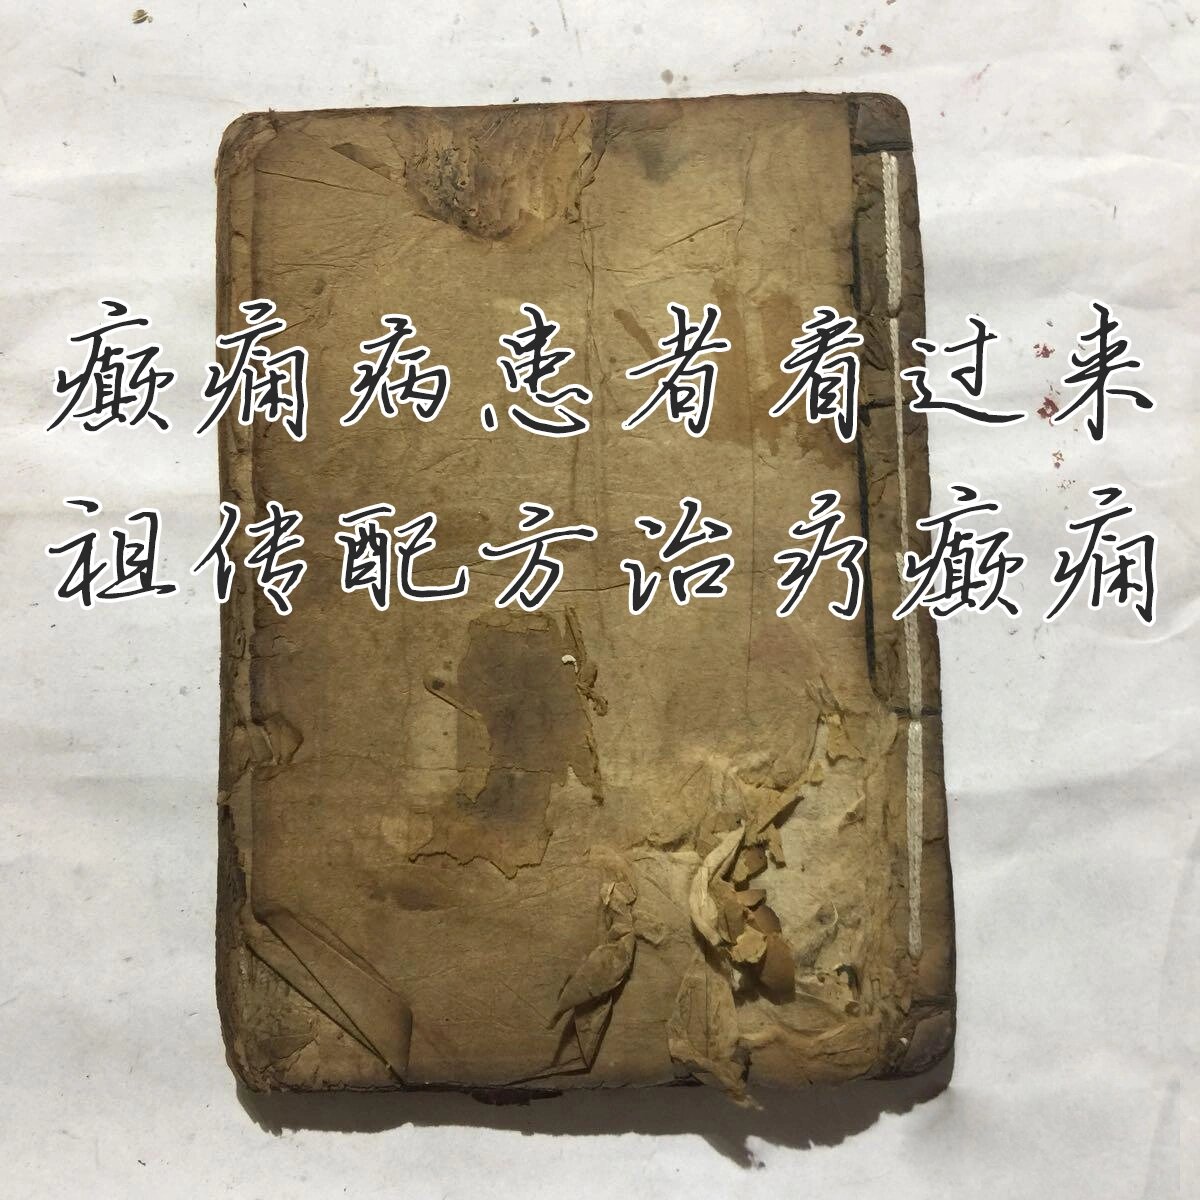 癫痫病患者看过来
祖传配方治疗癫痫